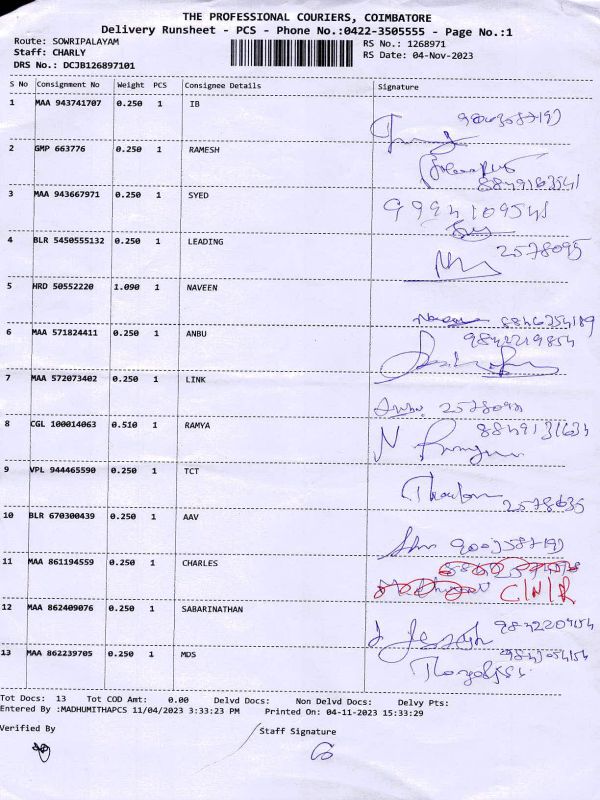 THE PROFESSIONAL COURIERS, COIMBATORE
Delivery Runsheet - PCS - Phone No.:0422-3505555 - Page No.:1
Route: SOWRIPALAYAM RS No.: 1268971
Staff: CHARLY RS Date: 04-Nov-2023
DRS No.: DCJB126897101
S No Consignment No Weight PCS Consignee Details Signature
1 MAA 943741707 0.250 1 IB
2 GMP 663776 0.250 1 RAMESH
8849163541
3 MAA 943667971 0.250 1 SYED
9994109541
4 BLR 5450555132 0.250 1 LEADING
2578095
5 HRD 50552220 1.090 1 NAVEEN
Naveen 8846254189
6 MAA 571824411 0.250 1 ANBU
9842219854
7 MAA 572073402 0.250 1 LINK
Anbu
8 CGL 100014063 0.510 1 RAMYA
8849131634
9 VPL 944465590 0.250 1 TCT
2578635
10 BLR 670300439 0.250 1 AAV
11 MAA 861194559 0.250 1 CHARLES
C/N/R
12 MAA 862409076 0.250 1 SABARINATHAN
9842204154
13 MAA 862239705 0.250 1 MDS
Tot Docs: 13 Tot COD Amt: 0.00 Delvd Docs: Non Delvd Docs: Delvy Pts:
Entered By :MADHUMITHAPCS 11/04/2023 3:33:23 PM Printed On: 04-11-2023 15:33:29
Verified By Staff Signature